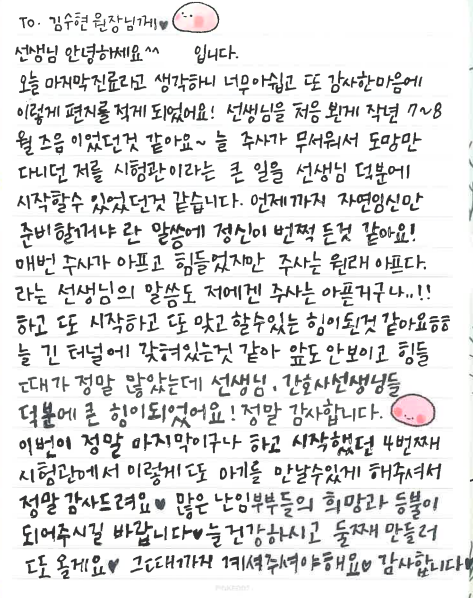 TO. 김수현 원장님께♥
선생님 안녕하세요^^ 입니다.
오늘 마지막진료라고 생각하니 너무아쉽고 또 감사한마음에
이렇게 편지를 적게 되었어요! 선생님을 처음 뵌게 작년 7~8
월즈음 이었던것 같아요~ 늘 주사가 무서워서 도망만
다니던 저를 시험관이라는 큰 일을 선생님 덕분에
시작할수 있었던것 같습니다. 언제까지 자연임신만
준비할꺼냐 란 말씀에 정신이 번쩍 든것 같아요!
매번 주사가 아프고 힘들었지만 주사는 원래 아프다.
라는 선생님의 말씀도 저에겐 주사는 아픈거구나..!!
하고 또 시작하고 또 맞고 할수있는 힘이된것 같아요ㅎㅎ
늘 긴 터널에 갖혀있는것 같아 앞도 안보이고 힘들
때가 정말 많았는데 선생님, 간호사선생님들
덕분에 큰 힘이되었어요! 정말 감사합니다.
이번이 정말 마지막이구나 하고 시작했던 4번째
시험관에서 이렇게 또 아기를 만날수있게 해주셔서
정말 감사드려요♥ 많은 난임부부들의 희망과 등불이
되어주시길 바랍니다♥ 늘건강하시고 둘째 만들러
또 올게요♥ 그때까지 계셔주셔야해요♥ 감사합니다♥